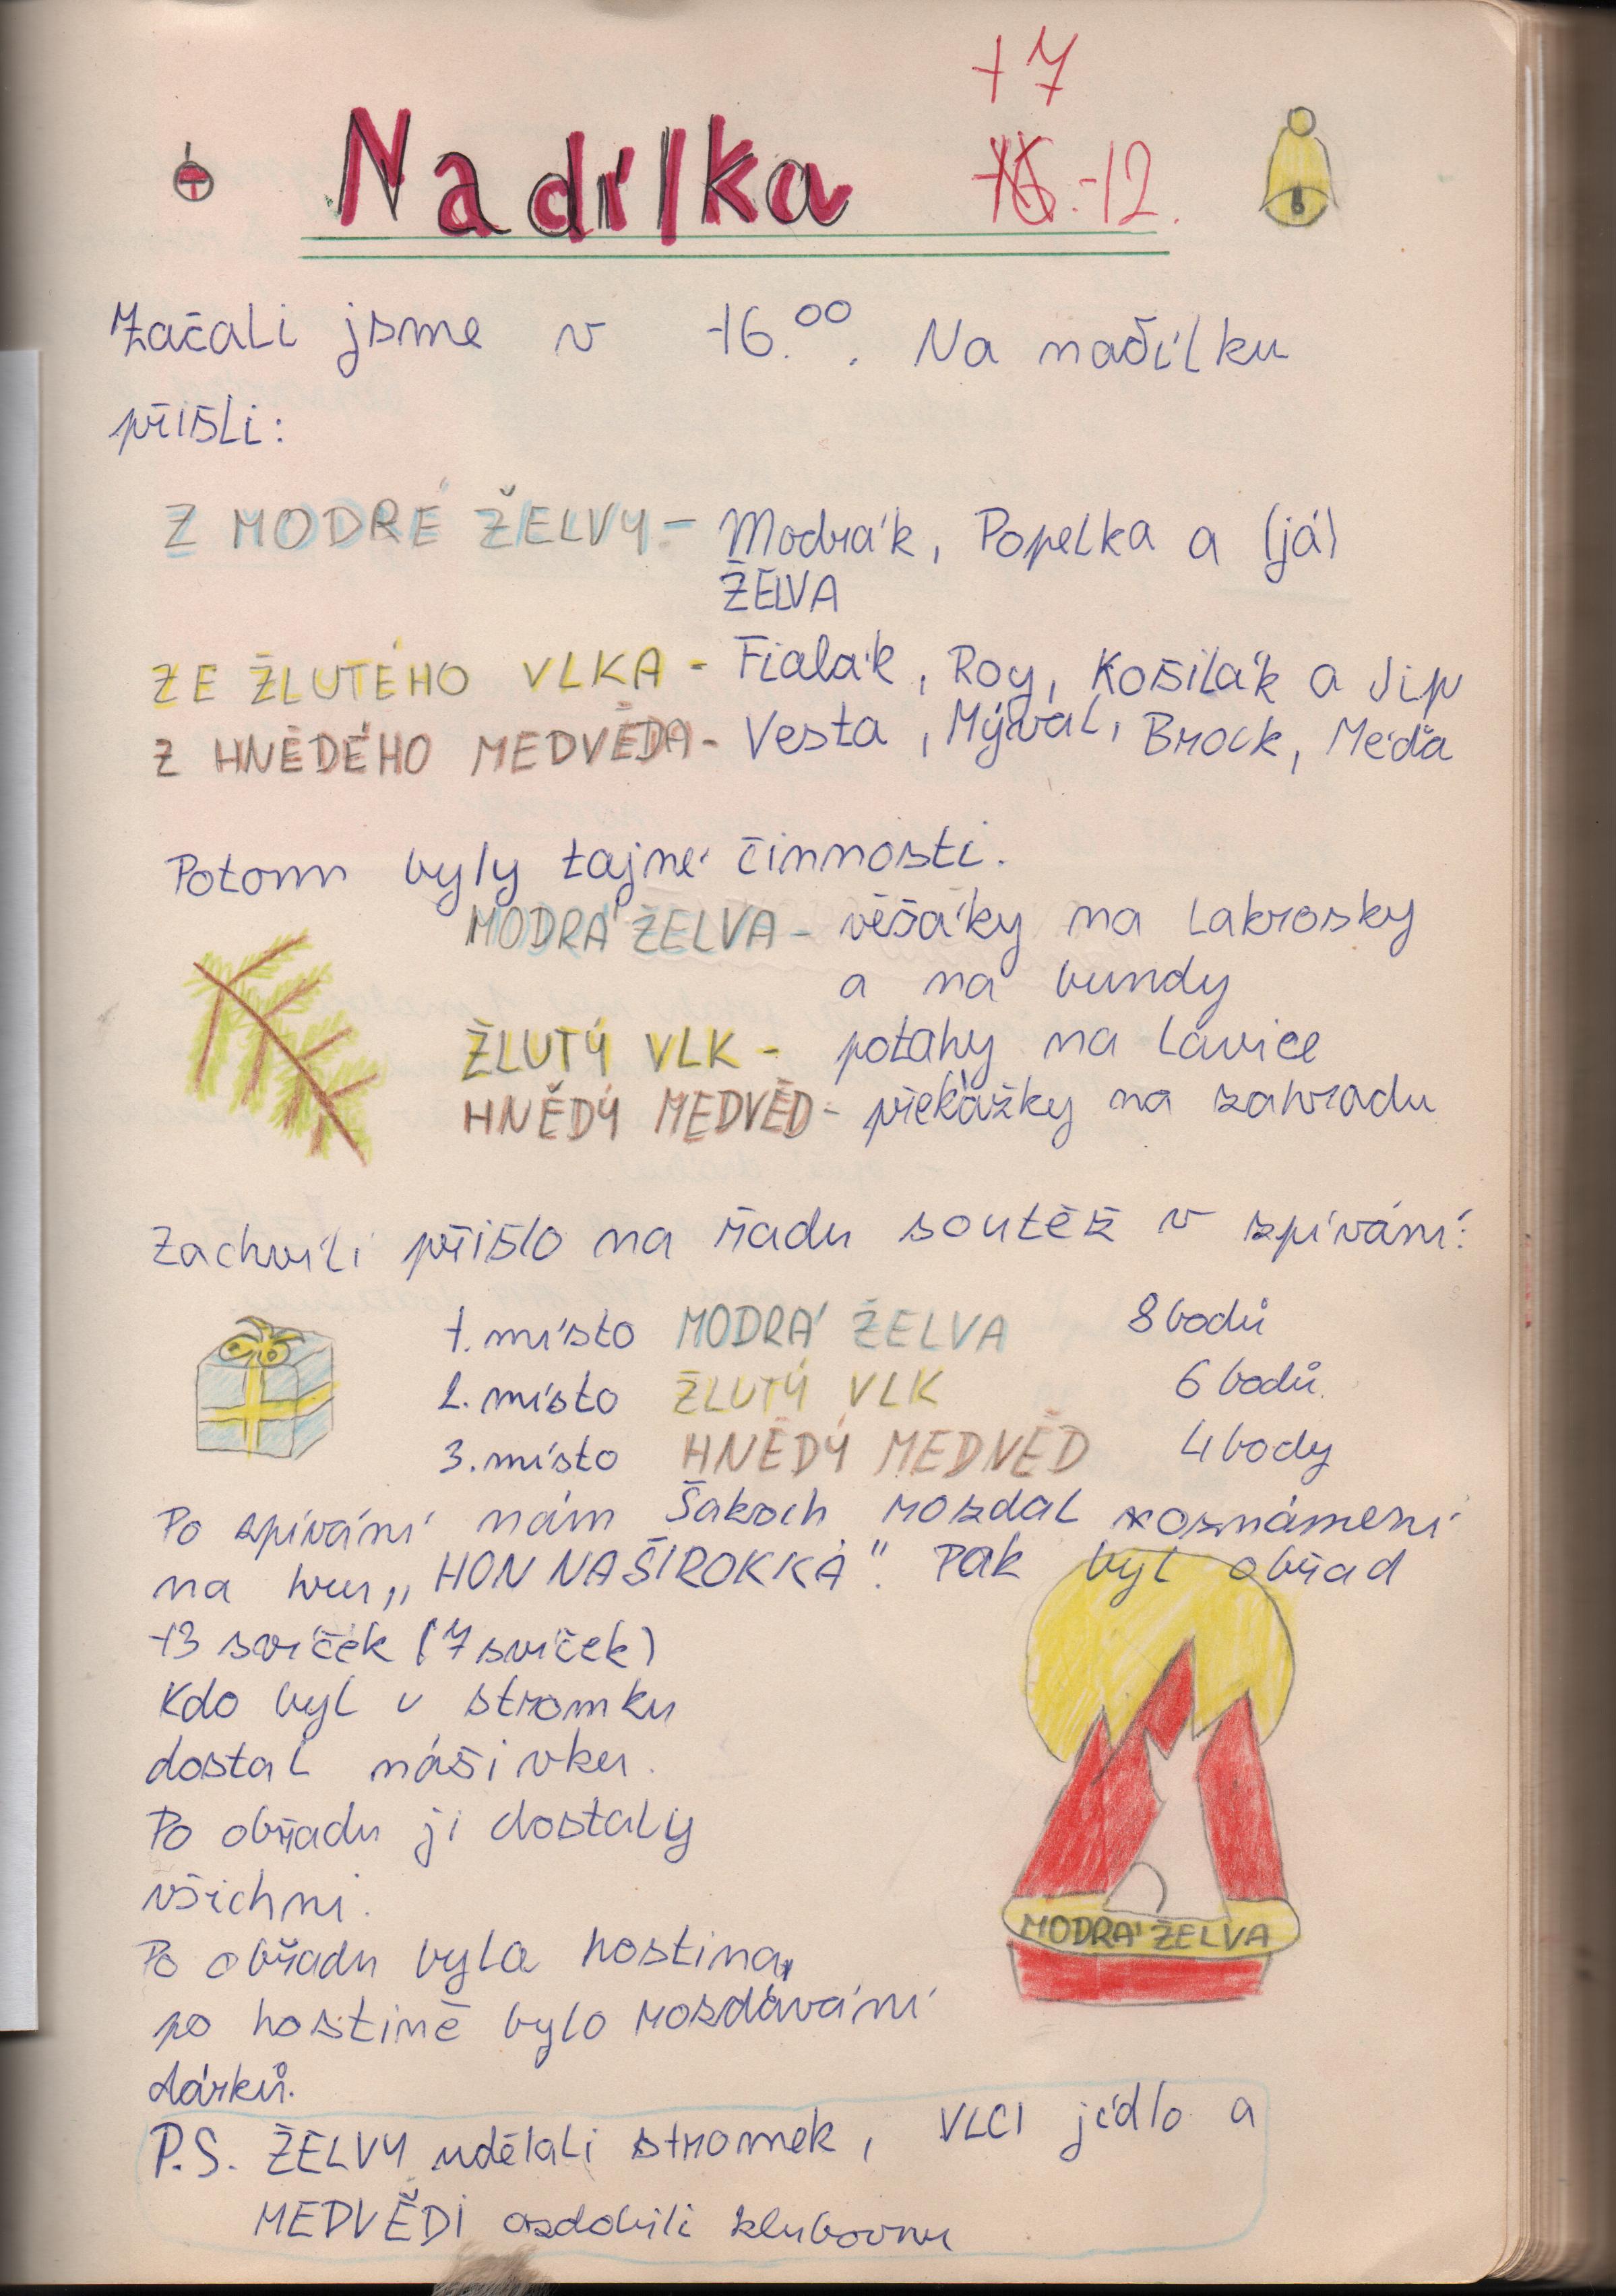 17
Nadílka 16.-12.
Začali jsme v 16.00. Na nadílku
přišli:
Z MODRÉ ŽELVY- Modrák, Popelka a (já)
ŽELVA
ZE ŽLUTÉHO VLKA - Fialák, Roy, Košilák a Jip
Z HNĚDÉHO MEDVĚDA- Vesta, Mýval, Brock, Méďa
Potom byly tajné činnosti.
MODRÁ ŽELVA- věšáky na lakrosky
a na bundy
ŽLUTÝ VLK - potahy na lavice
HNĚDÝ MEDVĚD- překážky na zahradu
Zachvíli přišlo na řadu soutěž v zpívání:
1. místo MODRÁ ŽELVA 8 bodů
2. místo ŽLUTÝ VLK 6 bodů.
3. místo HNĚDÝ MEDVĚD 4 body
Po zpívání nám Šakoch rozdal oznámení
na hru „HON NA ŠIROKKA". Pak byl obřad
13 svíček (7 svíček)
Kdo byl u stromku
dostal nášivku.
Po obřadu ji dostaly
všichni.
Po obřadu byla hostina,
po hostině bylo rozdávání
dárků.
MODRÁ ŽELVA
P.S. ŽELVY udělali stromek, VLCI jídlo a
MEDVĚDI ozdobili klubovnu